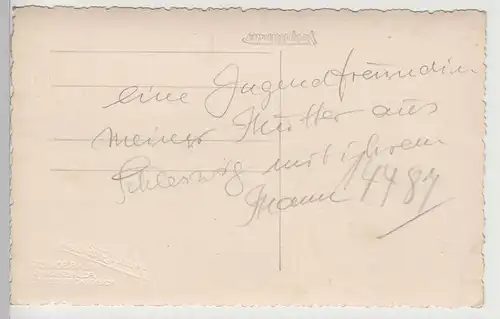 eine Jugendfreundin
meiner Mutter aus
Schleswig mit ihrem
Mann 4484